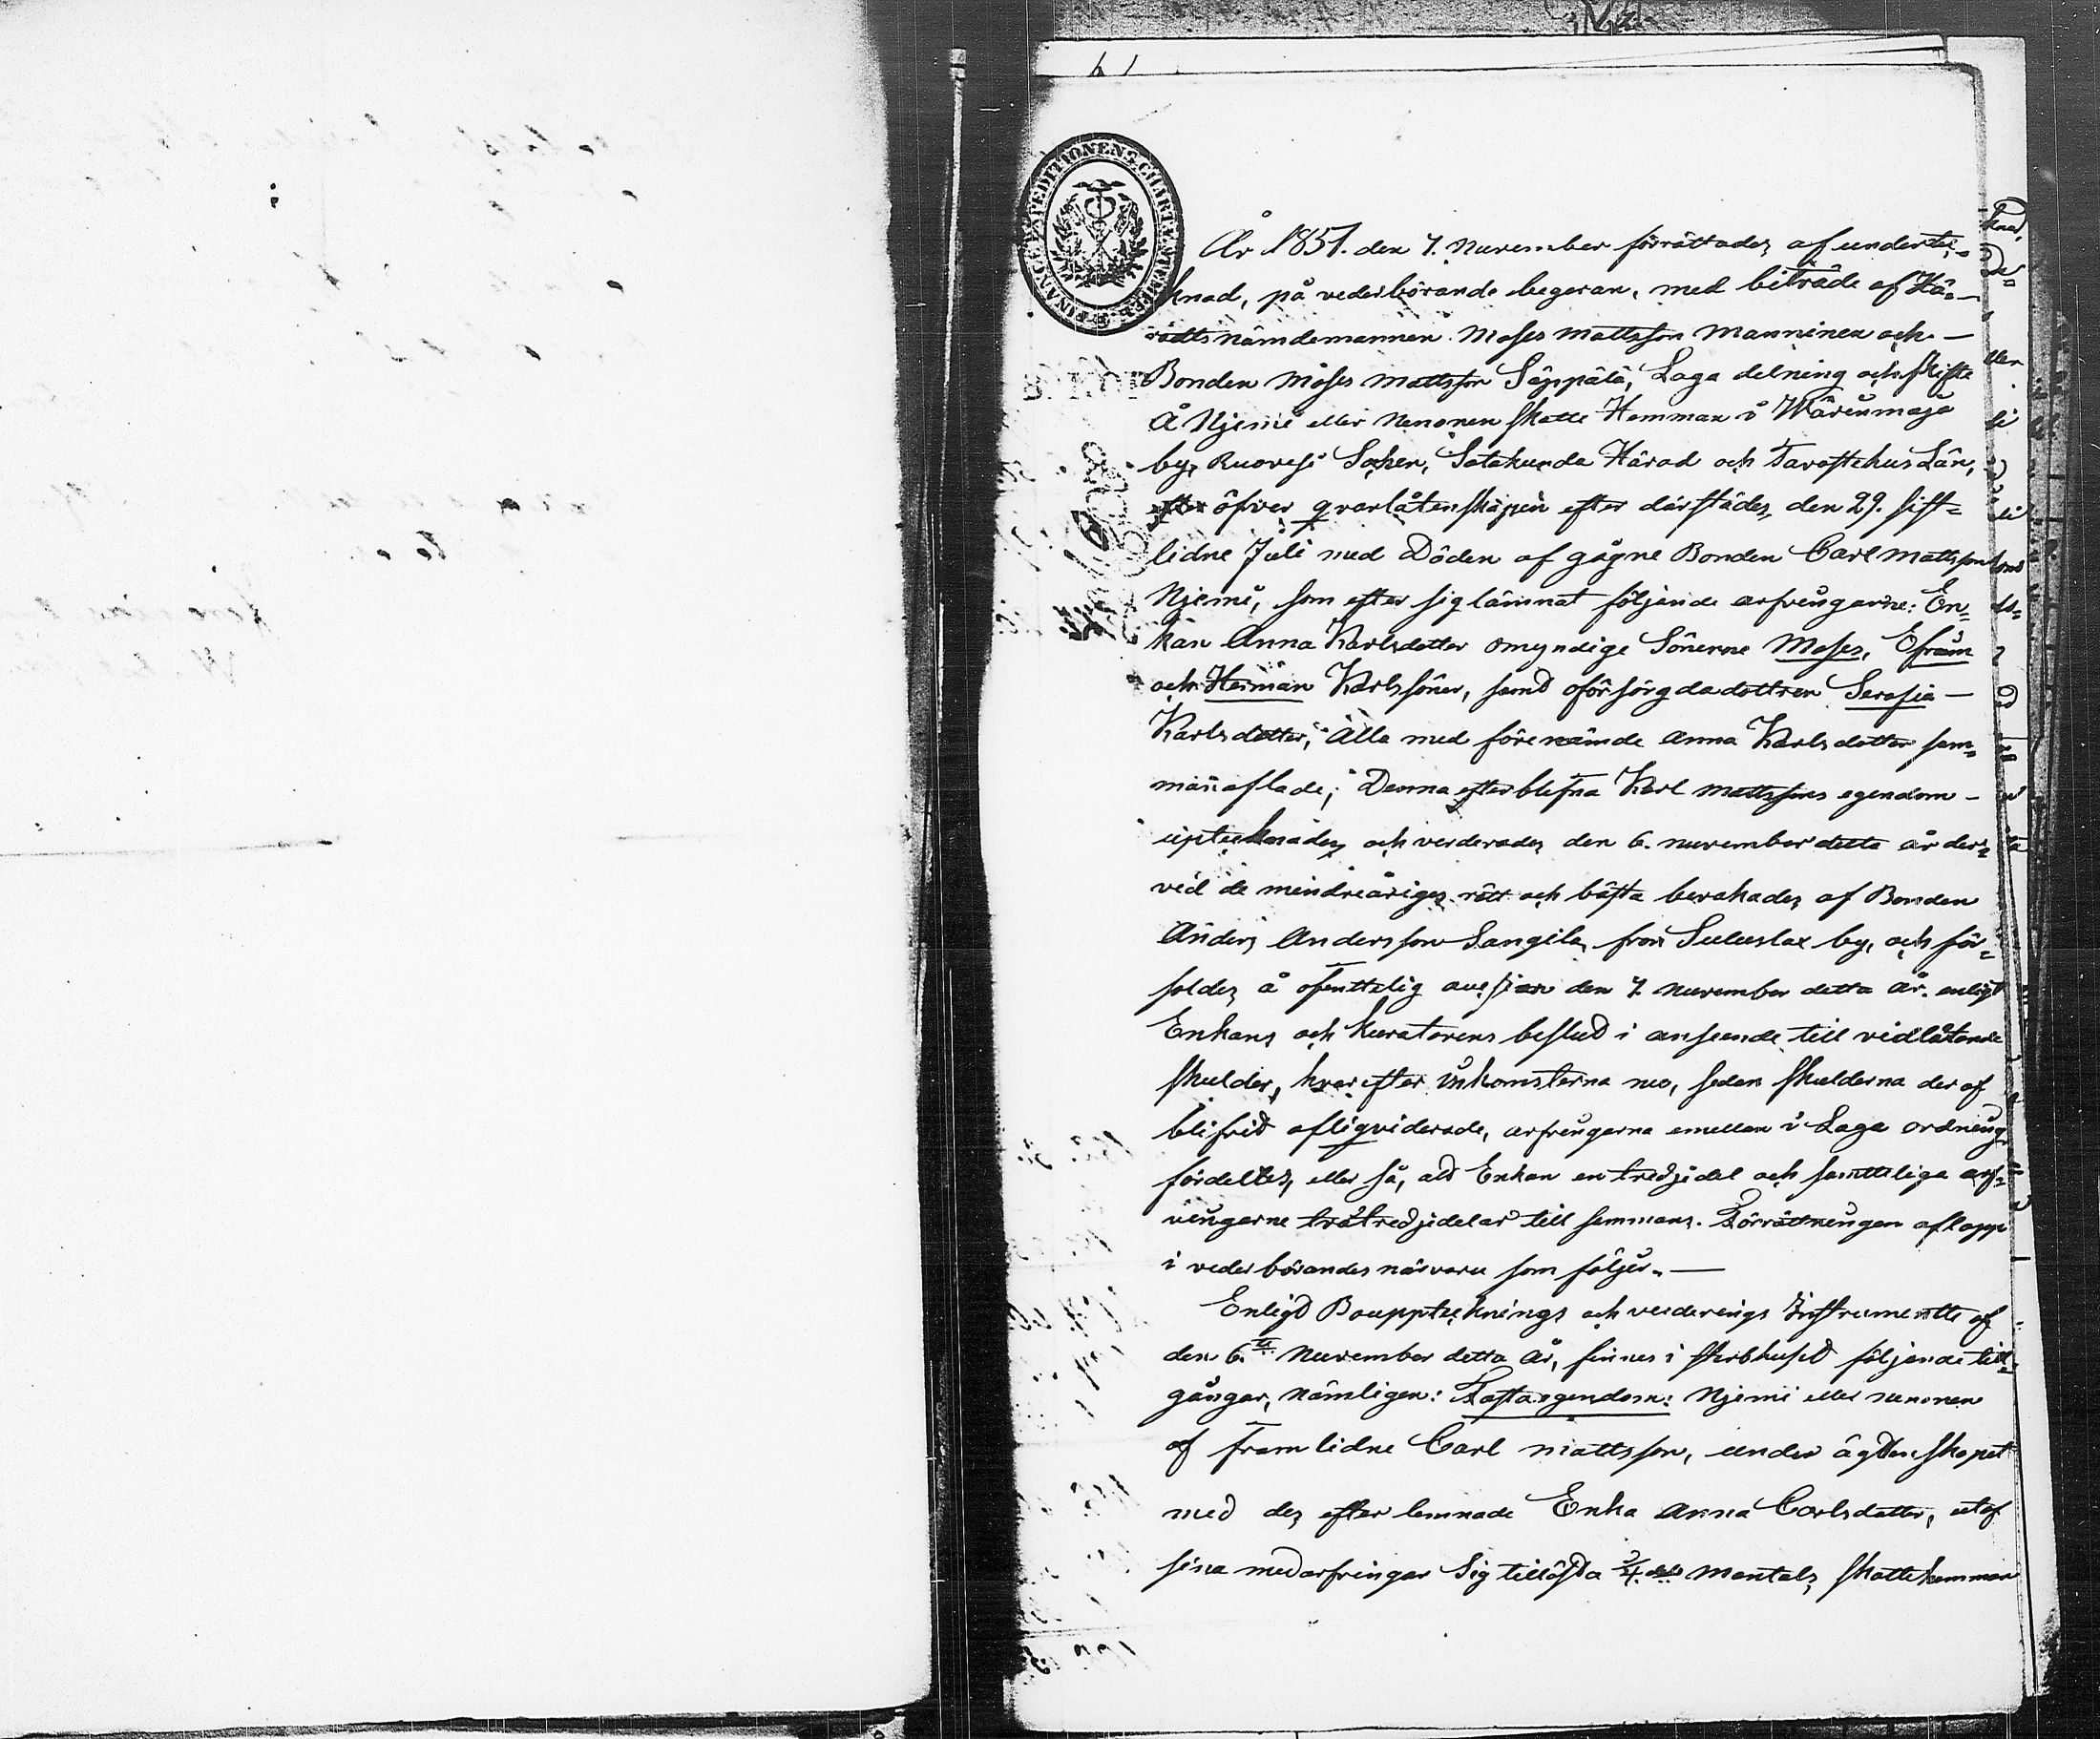 År 1851. den 7. November förrättades af underte,,
knad, på vederbörande begeran, med biträde af Hä,,
radts nämdemannen Moses Mattsson Manninen och
Bonden Moses Mattsson Säppälä, Laga delning och skifte
Å Njemi eller Nenonen skatte Hemman i Wärinmaja
by, Ruovesi Soken, Satakunda Härad och Tavastehus Län,
öfver qvarlåtenskapen efter därstädes, den 29. sist=
lidne Juli med Döden afgågne Bonden Carl Mattsson
Njemi, som efter sig lämnat följande arfvingarne: En=
kan Anna Karlsdotter omyndige Sönerne Moses, Efraim
och Herman Karlssöner, samd oförsörgda dottren Serafia
Karlsdotter, Alla med förenämde Anna Karlsdotter sam=
manaflade; Denna efterblefna Karl Mattssons egendom
upteknades och verderades den 6. november detta år der=
vid de mindreåriges rätt och bästa bevakades af Bonden
Anders Andersson Sangila från by, och för=
soldes å ofenttelig auksion den 7. November detta år. enligt
Enkans och Kuratorens beslud i anseende till vidlåtande
skulder, hvarefter inkomsterna nu, sedan skulderna deraf
blifvid afliqviderade, arfvingarna emellan i Laga ordning
fördeltes, eller så, ad Enkan en tredjedel och samtteliga arf=
vingarne två tredjedelar till sammans. Förrättningen aflopp
i vederbörandes närvaru som följer.
Enligd Bouppteknings och verderings Instrumentte af
den 6.te November detta År, finnes i sterbhused följande till=
gångar, nämligen: Fasta egendom: Njemi eller Nenonen
af framlidne Carl Mattsson, under ägtenskapet
med des efterlemnade Enka Anna Carlsdotter, utaf
sina medarfvingar Sig tillösta Mantals skattehemman